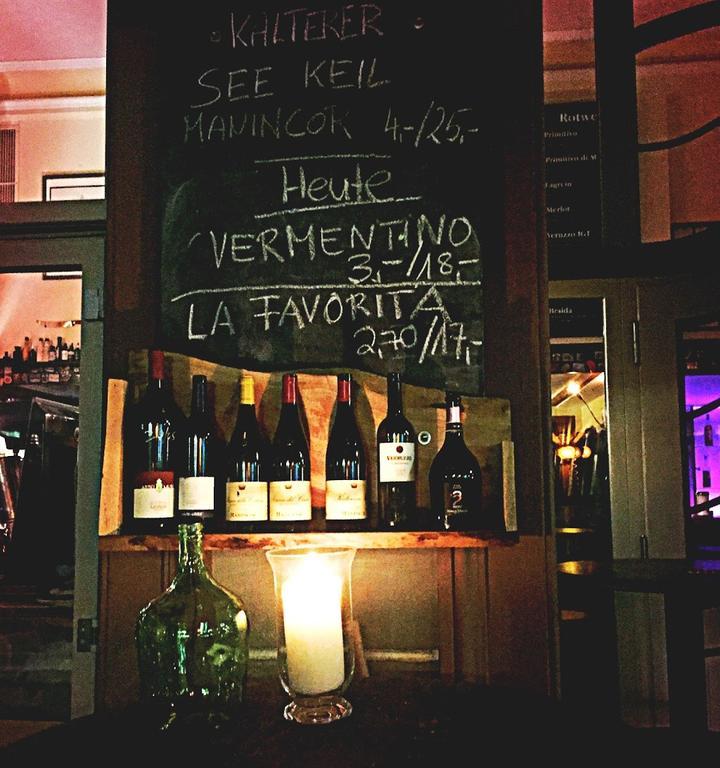 KALTERER
SEE KEIL
MANINCOR 4,-/25,-
Heute
VERMENTINO
3,-/18,-
LA FAVORITA
2,70//17,-
Rotwe
Primitivo
Primitivo di M
Lagrein
Merlot
Braida